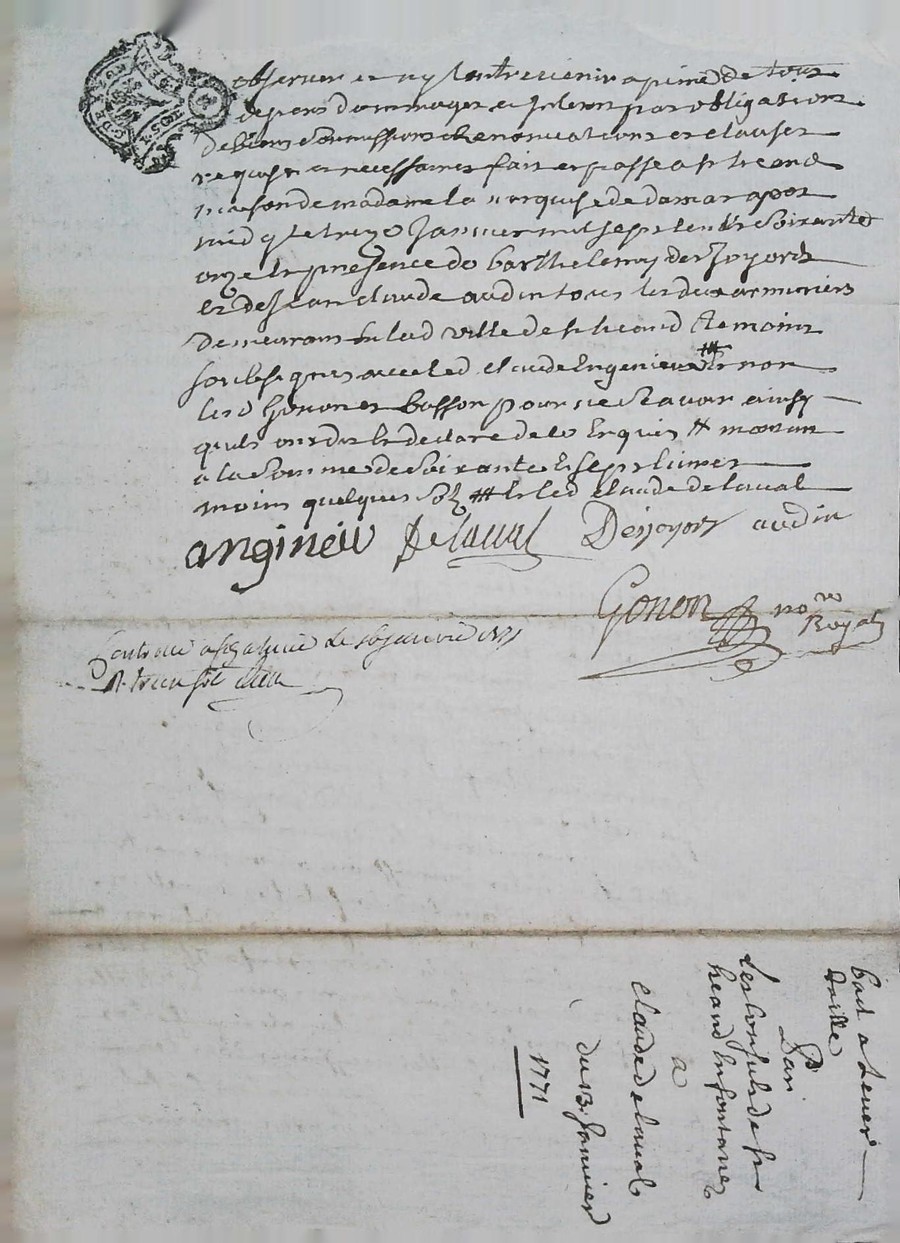 observer et ny Contrevenir a peine de tous
depens dommages et Interest par obligations
de biens soumissions Renonciations et clauses
requises et necessaires fait et passe a st heand
maison de madame la marquise de damas apres
midy le treize Janvier mil sept cent soixante
onze En presence de barthelemy desjoyords
et de Jean claude audin tous les deux armuriers
Demeurant En lad ville de st heand temoins
soubsignes avec led claude Engenieux # Et non
les d Gonon et basson pour ne scavoir ainsy
quils ont dit et declare de ce Enquis # montant
a la somme de soixante Et sept livres
moins quelques sols # Et led claude delaval
angineiu Delaval Desjoyorz audin
Gonon no re
Royal
Controlé a st galmié le janvié 1771
R. treize sols
bail a Lever
de ville
Par
Les Consuls de st
heand En fontanes
a
claude delaval
du 13. Janvier
1771